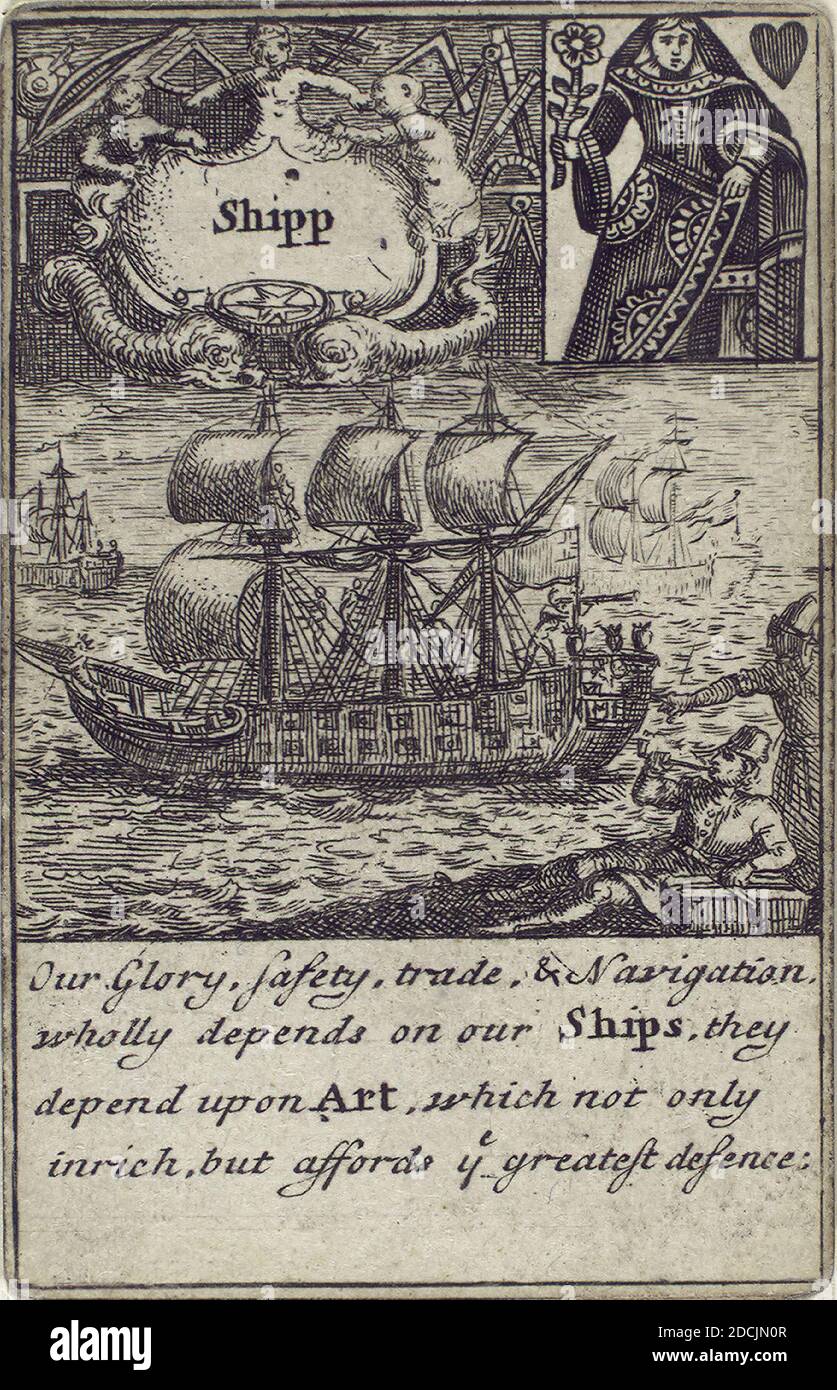 Shipp
IMF
Our Glory, ſafety, trade, & Navigation,
wholly depends on our Ships, they
depend upon Art, which not only
inrich, but affords yᵉ greateſt defence:
alamy
alamy
Image ID: 2DCJN0R
www.alamy.com